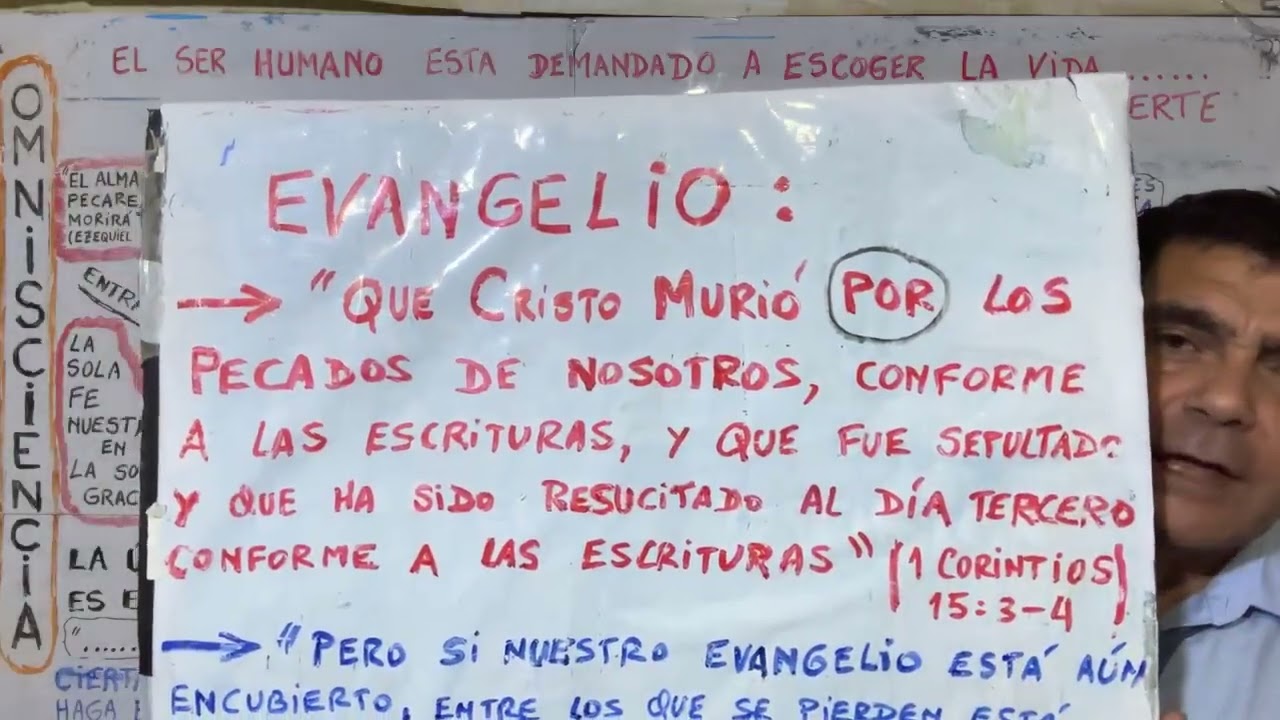 EL SER HUMANO ESTA DEMANDADO A ESCOGER LA VIDA......
ERTE
OMNISCIENCIA
"EL ALMA
PECARE
MORIRÁ"
(EZEQUIEL
ENTR
LA
SOLA
FE
NUESTR
EN
LA SO
GRAC
LA
ES E
"......
CIERT
HAGA
EVANGELIO :
→ "QUE CRISTO MURIÓ POR LOS
PECADOS DE NOSOTROS, CONFORME
A LAS ESCRITURAS, Y QUE FUE SEPULTADO
Y QUE HA SIDO RESUCITADO AL DÍA TERCERO
CONFORME A LAS ESCRITURAS" (1 CORINTIOS
15:3-4)
→ "PERO SI NUESTRO EVANGELIO ESTÁ AÚN
ENCUBIERTO, ENTRE LOS QUE SE PIERDEN ESTÁ